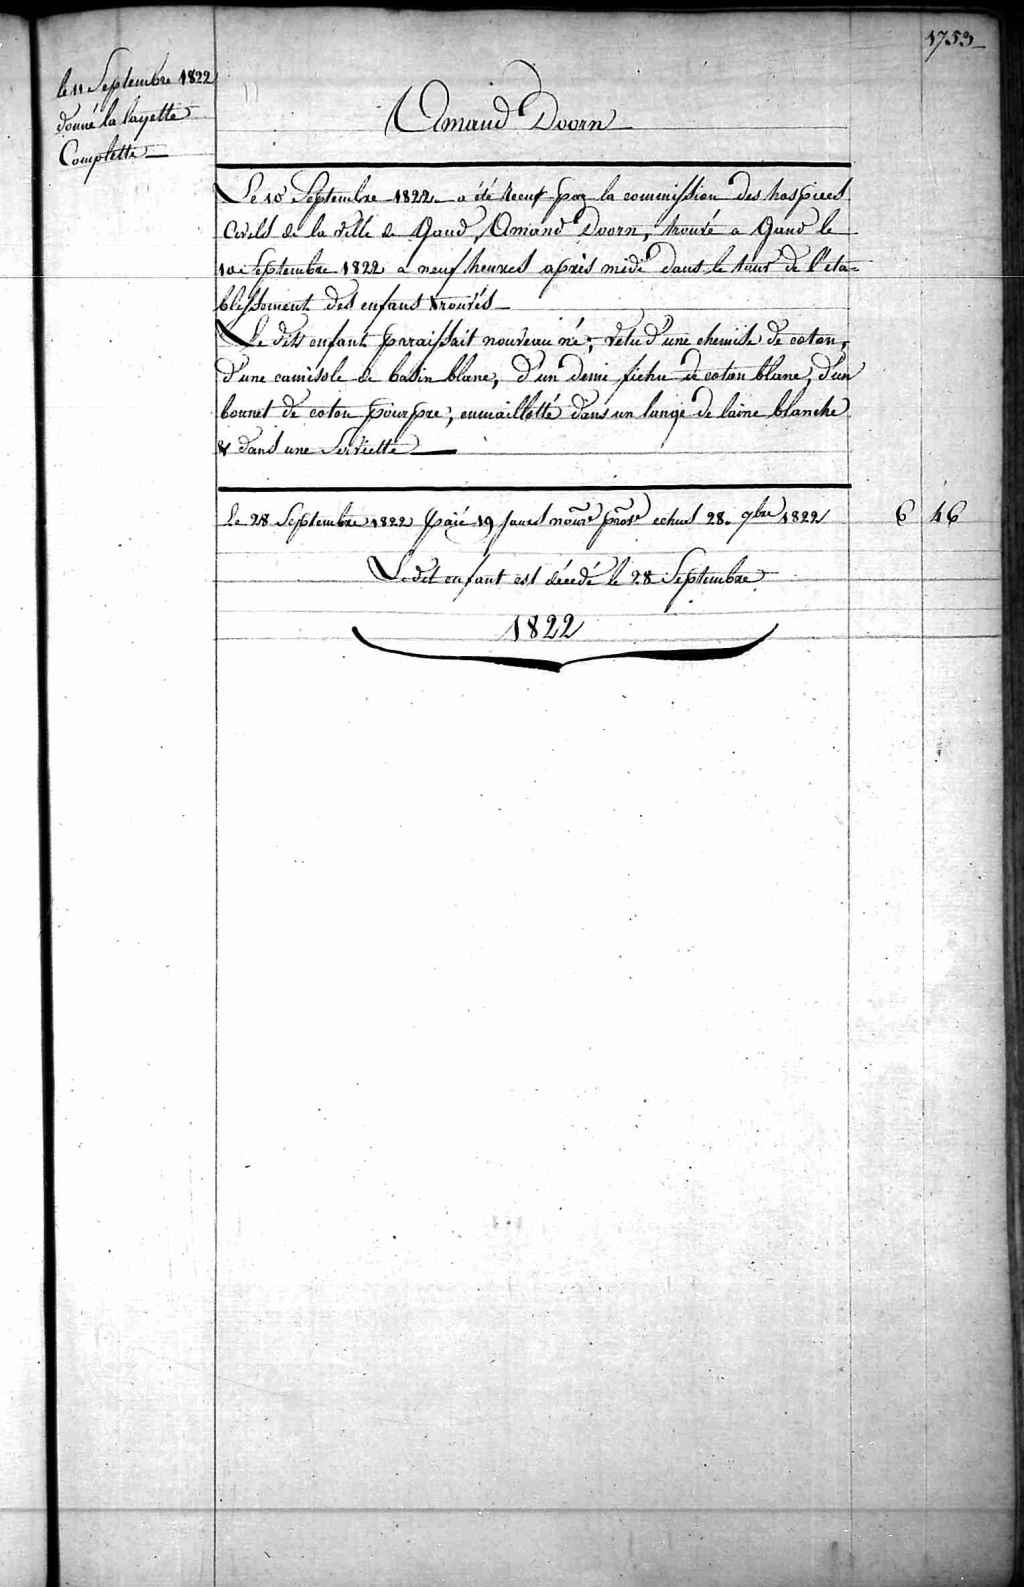 1753
le 11 Septembre 1822
donné la layette
Complette
Amand Doorn
Le 10 Septembre 1822 a été recu par la commission des hospices
Civils de la ville de Gand, Amand Doorn, trouvé a Gand le
10 Septembre 1822 a neuf heures après midi dans le tour de l'eta-
blissement des enfans trouvés
Le dit enfant paraissait nouveau né, vetu d'une chemise de coton,
d'une camisole de basin blanc, d'un demi fichu de coton blanc, d'un
bonnet de coton pourpre, emmaillotté dans un lange de laine blanche
& dans une Serviette
Le 28 Septembre 1822 payé 19 jours nourre echus 28. 7bre 1822 6 46
Le dit enfant est décedé le 28 Septembre
1822